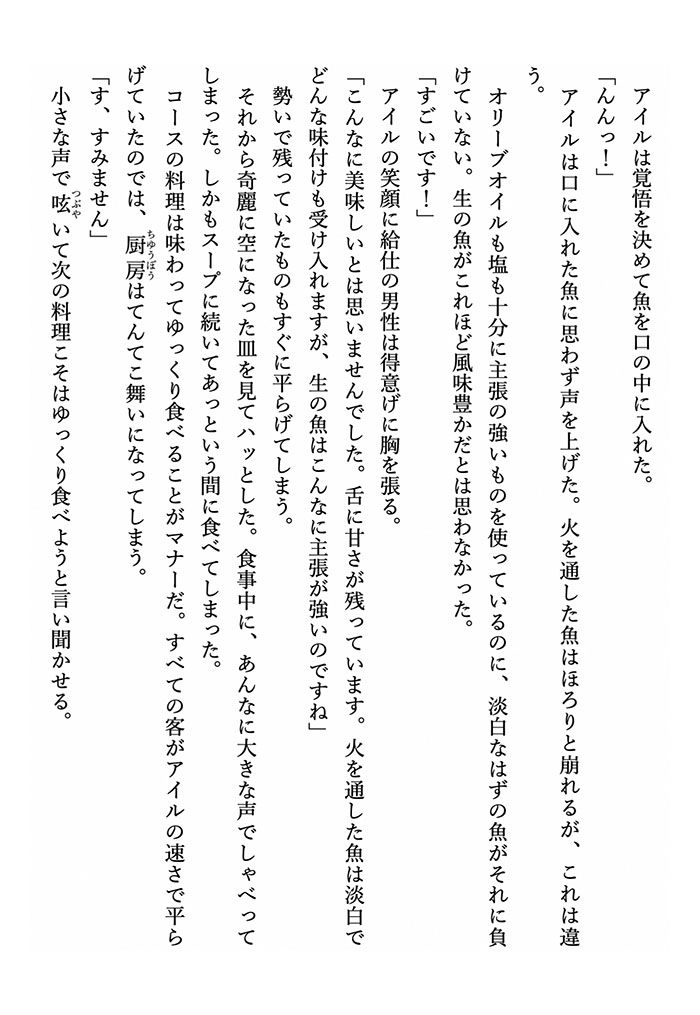 アイルは覚悟を決めて魚を口の中に入れた。
「んんっ！」
　アイルは口に入れた魚に思わず声を上げた。火を通した魚はほろりと崩れるが、これは違
う。
　オリーブオイルも塩も十分に主張の強いものを使っているのに、淡白なはずの魚がそれに負
けていない。生の魚がこれほど風味豊かだとは思わなかった。
「すごいです！」
　アイルの笑顔に給仕の男性は得意げに胸を張る。
「こんなに美味しいとは思いませんでした。舌に甘さが残っています。火を通した魚は淡白で
どんな味付けも受け入れますが、生の魚はこんなに主張が強いのですね」
　勢いで残っていたものもすぐに平らげてしまう。
　それから奇麗に空になった皿を見てハッとした。食事中に、あんなに大きな声でしゃべって
しまった。しかもスープに続いてあっという間に食べてしまった。
　コースの料理は味わってゆっくり食べることがマナーだ。すべての客がアイルの速さで平ら
げていたのでは、厨房ちゅうぼうはてんてこ舞いになってしまう。
「す、すみません」
　小さな声で呟つぶやいて次の料理こそはゆっくり食べようと言い聞かせる。